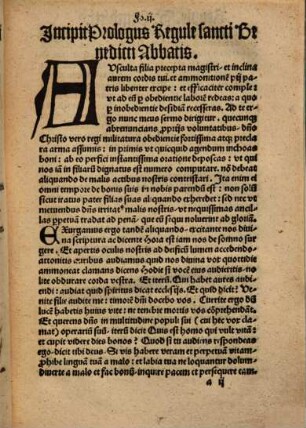 Fo.ii.
Incipit Prologus Regule sancti Be
nedicti Abbatis.
AUsculta filia precepta magistri · et inclina
aurem cordis tui. et ammonitionē pij patris
libenter excipe : et efficaciter comple
ut ad eū p obedientie laborē redeas: a quo
p inobedientie desidiā recesseras. Ad te ergo
nunc meus sermo dirigitur. quecunq
abrenuncians propriis voluntatibus dño
Christo vero regi militatura obedientie fortissima atq preclara
arma assumis : in primis ut quicquid agendum inchoas
boni: ab eo perfici instantissima oratione deposcas: ut qui nos
iā in filiarū dignatus est numero computare. nō debeat
aliquando de malis actibus nostris contristari. Ita enim ei
omni tempore de bonis suis in nobis parendū est : non solū
iratus pater filias suas
metuendus dñs irritatus malis nostris. ut nequissimas ancillas
perpetuā tradat ad penā. que eū sequi noluerint ad gloriā.
EXurgamus ergo tandē aliquando. excitante nos divina
scriptura ac dicente Hora est iam nos de somno surgere.
Et apertis oculis nostris ad deificū lumen
attonitis auribus audiamus quid nos divina vox quotidie
ammoneat clamans dicens Hodie si vocē eius audieritis nolite
obdurare corda vestra. Et iterū. Qui habet aures audiendi
: audiat quid spiritus dicat ecclesijs. Et quid dicit? Venite
filie audite me : timorē dñi docebo vos. Currite ergo dū
lucē habetis huius vite : ne tenebre mortis vos cōprehendāt.
Et querens dñs in multitudine populi sui ( cui hec vox clamat)
operariū suū. iterū dicit Quis est homo qui vult vitā: et
cupit videre dies bonos ? Quod si tu audiens respondeas
ego · dicit tibi deus. Si vis habere veram et perpetuā vitam
prohibe linguā tuā a malo : et labia tua ne loquantur dolum
diverte a malo et fac bonū. inquire pacem et persequere eam
a ij